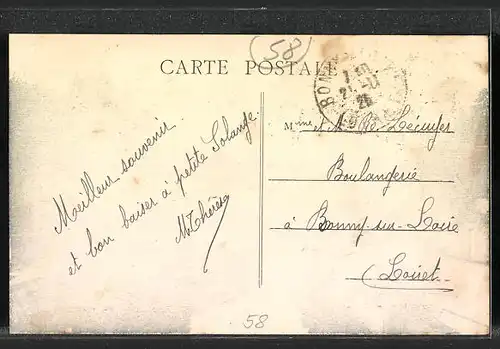 (58)
CARTE POSTALE
7 30
26
Meilleur souvenir
et bon baiser à petite Solange.
MThérèse
Mme Lécuyer
Boulangerie
à Bonny-sur-Loire
(Loiret
58